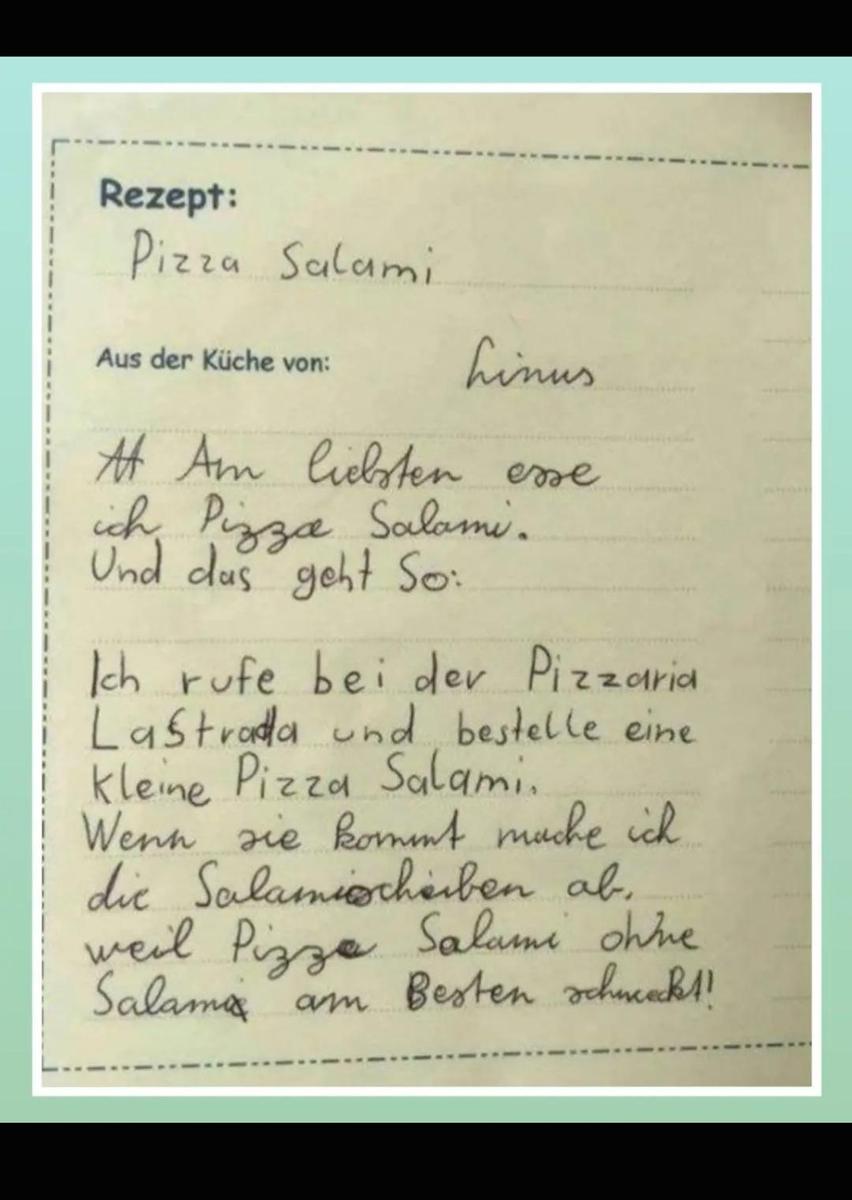 Rezept:
Pizza Salami
Aus der Küche von: Linus
Am liebsten esse
ich Pizza Salami.
Und das geht So:
Ich rufe bei der Pizzaria
LaStrada und bestelle eine
kleine Pizza Salami.
Wenn sie kommt mache ich
die Salamischeiben ab,
weil Pizza Salami ohne
Salami am Besten schmeckt!